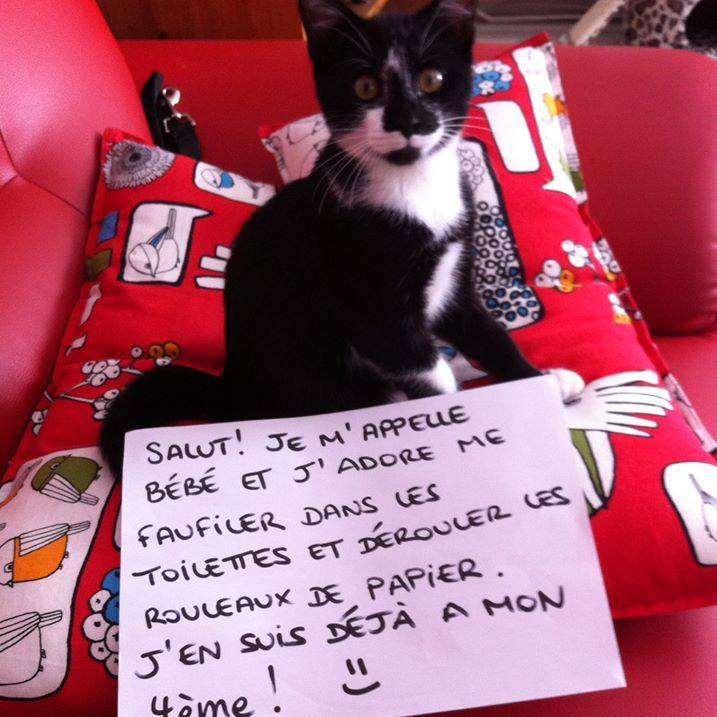 SALUT! JE M'APPELLE
BÉBÉ ET J'ADORE ME
FAUFILER DANS LES
TOILETTES ET DÉROULER LES
ROULEAUX DE PAPIER.
J'EN SUIS DÉJÀ A MON
4ème! =)